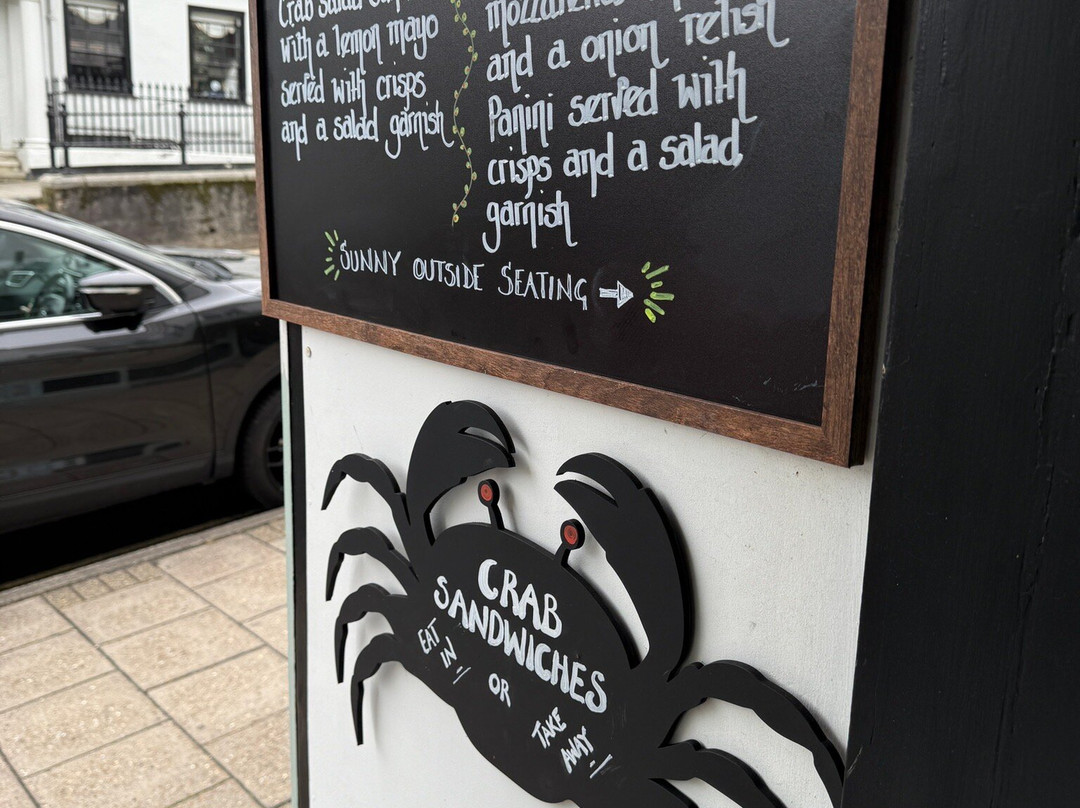 Crab salad
with a lemon mayo
served with crisps
and a salad garnish
mozzarella
and a onion relish
Panini served with
crisps and a salad
garnish
SUNNY OUTSIDE SEATING
CRAB
SANDWICHES
EAT
IN
OR
TAKE
AWAY